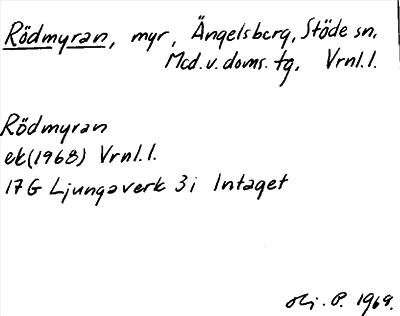 Rödmyran, myr, Ängelsberg, Stöde sn,
Mcd.v.doms.tg, Vrnl.l.
Rödmyran
ek(1968) Vrnl.l.
17G Ljungaverk 3i Intaget
1969.